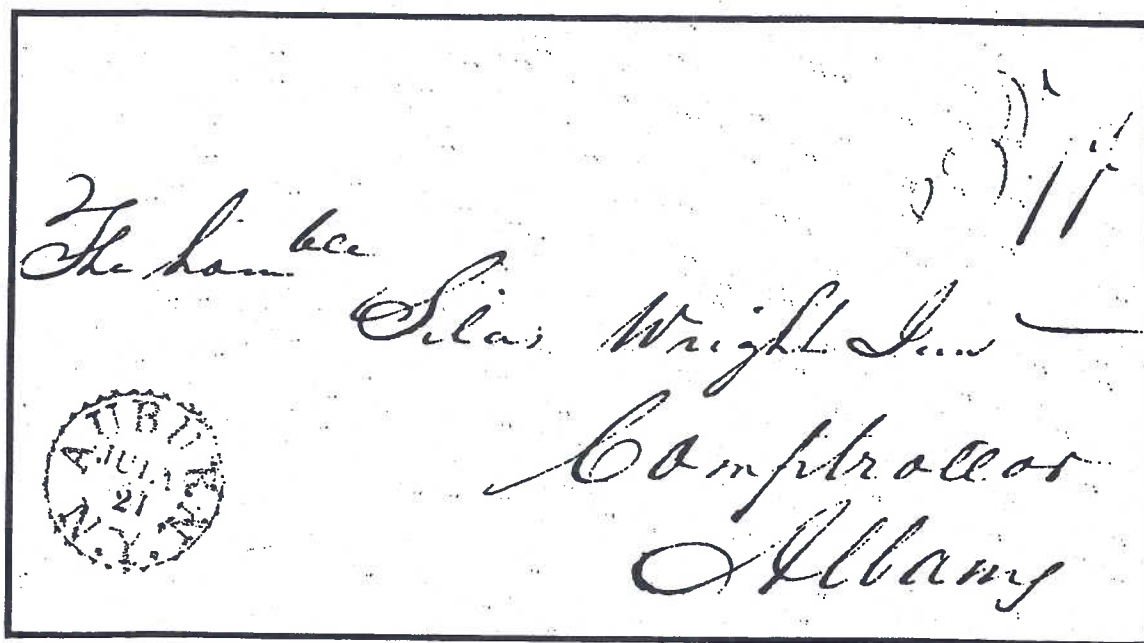 The hon ble
Silas Wright Jun
Comptroller
Albany
AUBURN
JUL
21
N.Y.